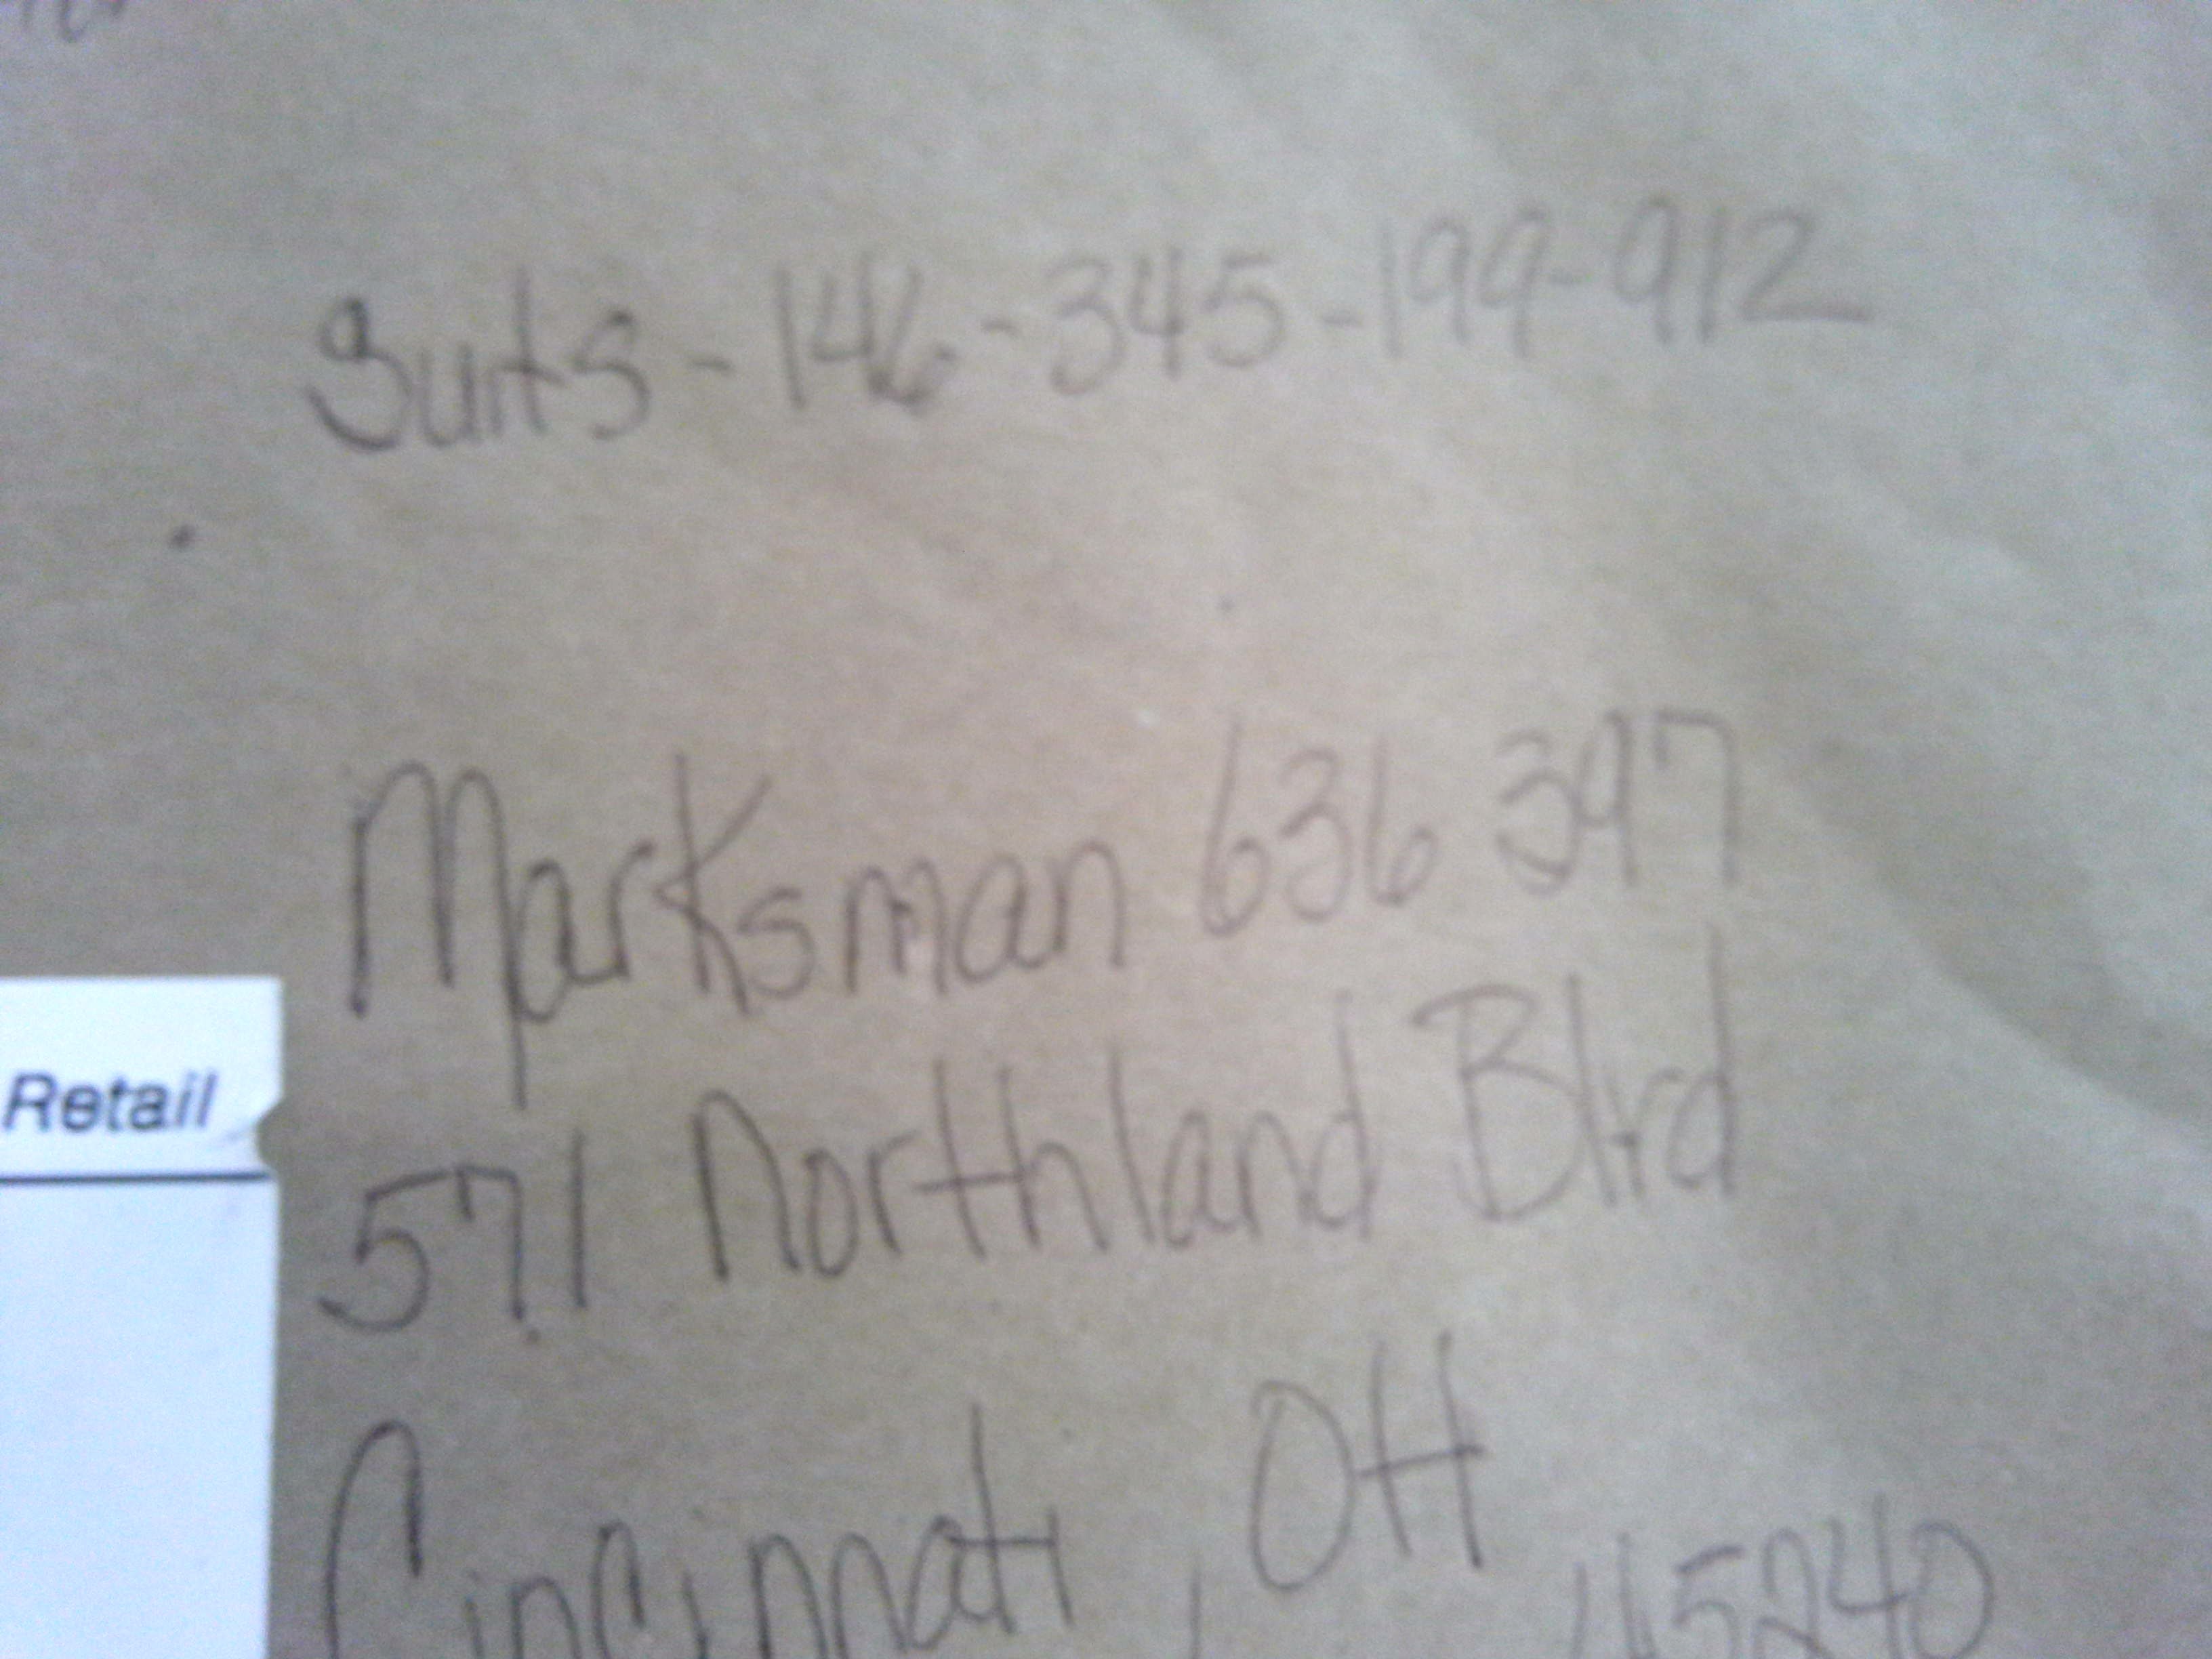 Suits - 146 - 345 - 199 - 912
Marksman 636 397
571 Northland Blvd
Cincinnati, OH
45240
Retail